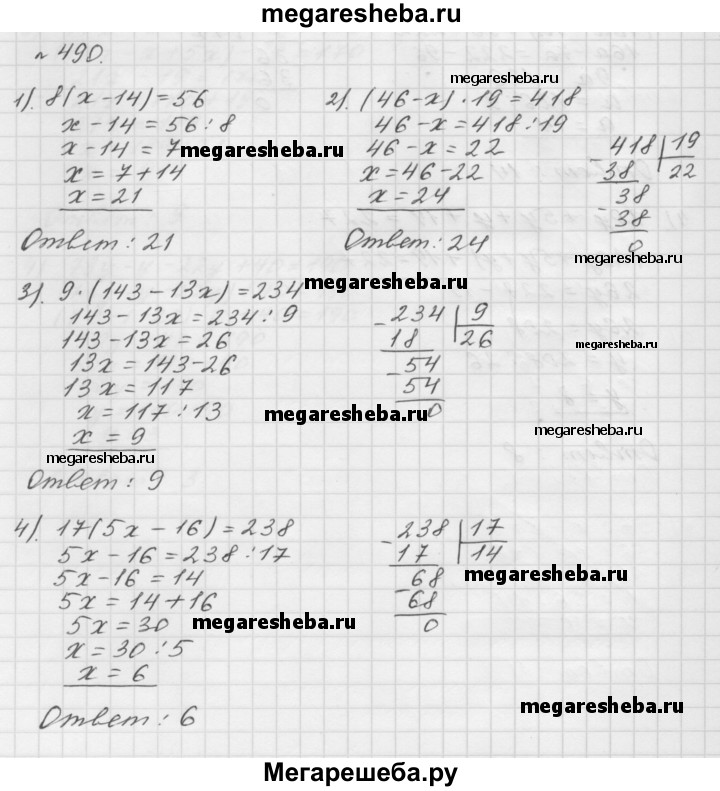 megaresheba.ru
№ 490.
megaresheba.ru
1). 8(x-14)=56
x-14=56:8
x-14=7
megaresheba.ru
x=7+14
x=21
Ответ: 21
2). (46-x)·19=418
46-x=418:19
46-x=22
x=46-22
x=24
Ответ: 24
- 418 | 19
38 22
- 38
38
0
megaresheba.ru
3). 9·(143-13x)=234
megaresheba.ru
143-13x=234:9
143-13x=26
13x=143-26
13x=117
x=117:13
megaresheba.ru
x=9
megaresheba.ru
Ответ: 9
- 234 | 9
18 26
- 54
54
0
megaresheba.ru
megaresheba.ru
4). 17(5x-16)=238
5x-16=238:17
5x-16=14
5x=14+16
5x=30
megaresheba.ru
x=30:5
x=6
Ответ: 6
- 238 | 17
17 14
- 68
68
0
megaresheba.ru
megaresheba.ru
Мегарешеба.ру